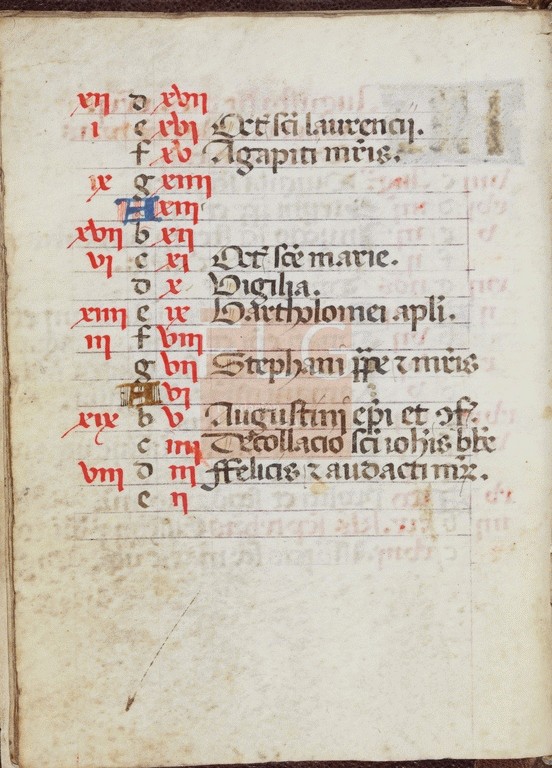 xii d xvii
i e xvi Oct sci laurencij.
f xv Agapiti mris.
ix g xiiii
A xiii
xvii b xii
vi c xi Oct sce marie.
d x Vigilia.
xiiii e ix Bartholomei apli.
iii f viii
g vii Stephani ppe ⁊ mris
A vi
xix b v Augustinj epi et ꝯf.
c iiii Decollacio sci iohis bte
viii d iii ffelicis ⁊ audacti mr.
e ii